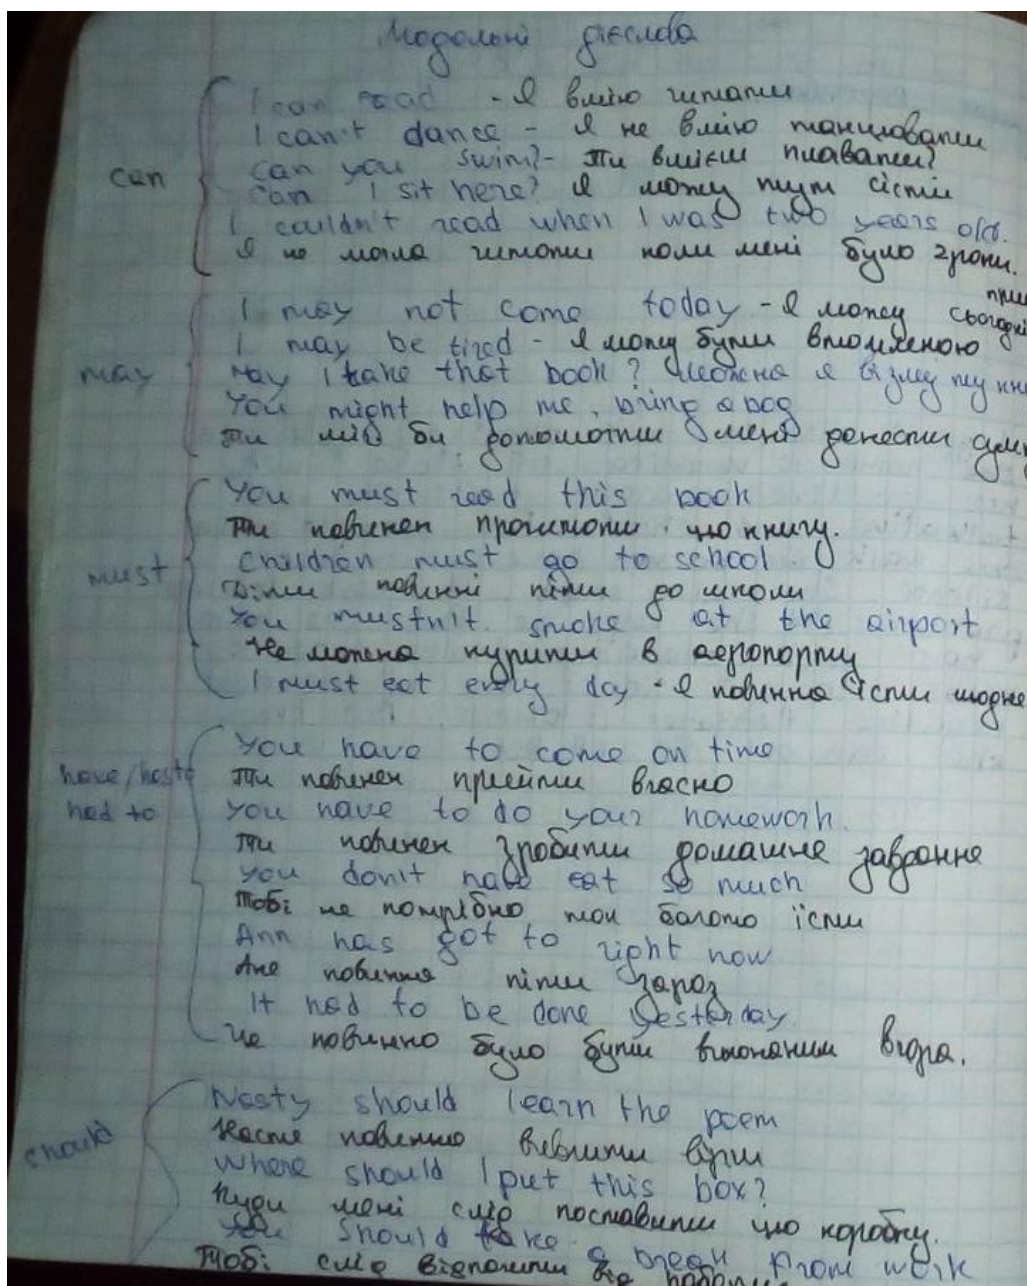 Модальні дієслова
can
I can read - Я вмію читати
I can't dance - Я не вмію танцювати
can you swim? - Ти вмієш плавати?
can I sit here? Я можу тут сісти
I couldn't read when I was two years old.
Я не могла читати коли мені було 2 роки.
may
I may not come today - Я можу сьогодні
I may be tired - Я можу бути втомленою
May I take that book? Можна я візьму ту кни
You might help me, bring a bag
Ти міг би допомогти мені донести сумк
must
You must read this book
Ти повинен прочитати цю книгу.
Children must go to school
Діти повинні піти до школи
You mustn't smoke at the airport
Не можна курити в аеропорту
I must eat every day - Я повинна їсти щодне
have/has to
had to
You have to come on time
Ти повинен прийти вчасно
You have to do your homework.
Ти повинен зробити домашнє завдання
You don't have eat so much
Тобі не потрібно так багато їсти
Ann has got to right now
Аня повинна піти зараз
It had to be done yesterday.
Це повинно було бути виконаним вчора.
should
Nasty should learn the poem
Настя повинна вивчити вірш
Where should I put this box?
Куди мені слід поставити цю коробку.
You should take a break from work
Тобі слід відпочити від